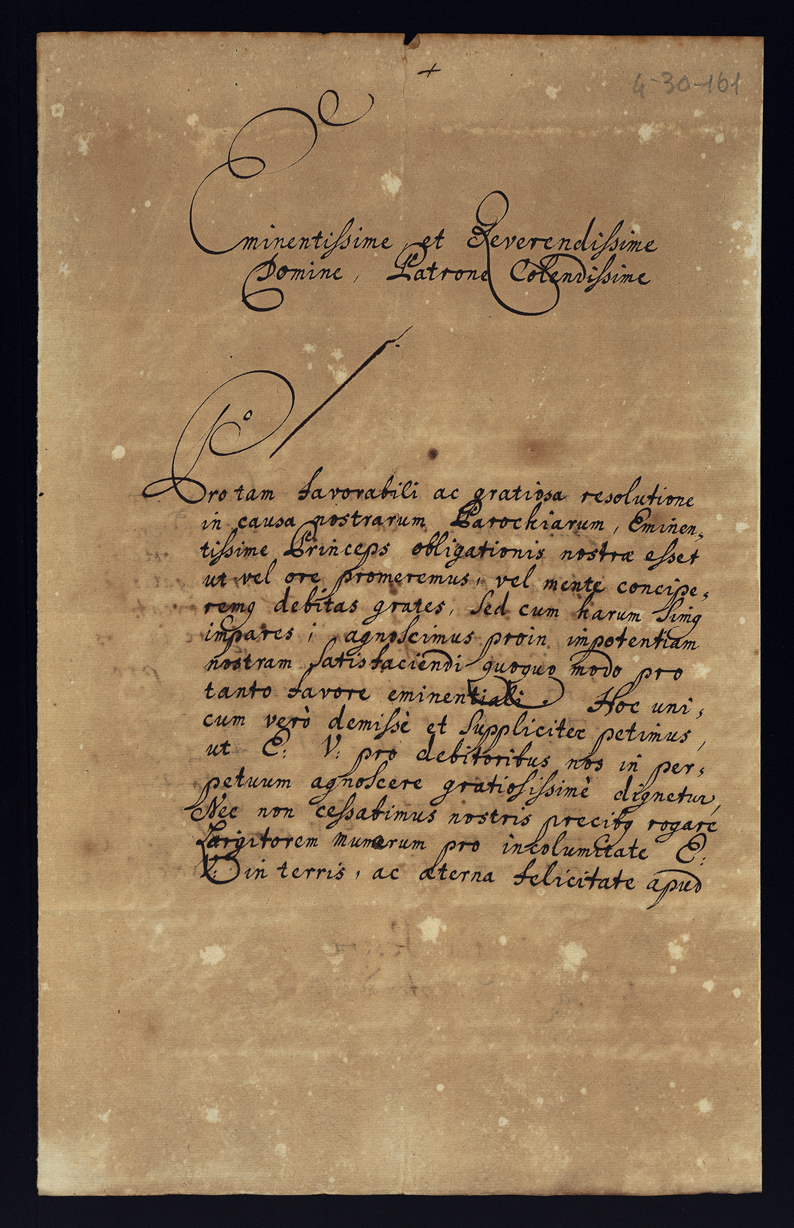 +
4-30-161
Eminentissime et Reverendissime
Domine, Patrone Colendissime
Pro tam favorabili ac gratiosa resolutione
in causa nostrarum Parochiarum, Eminen,
tissime Princeps obligationis nostræ esset
ut vel ore promeremus, vel mente concipe,
remq debitas grates, sed cum harum simq
impares; agnoscimus proin impotentiam
nostram satisfaciendi quoquo modo pro
tanto favore eminentiali. Hoc uni,
cum verò demissè et suppliciter petimus,
ut E: V: pro debitoribus nos in per,
petuum agnoscere gratiosissimè dignetur,
Nec non cessabimus nostris precibq rogare
Largitorem munerum pro incolumitate E:
V: in terris, ac æterna felicitate apud